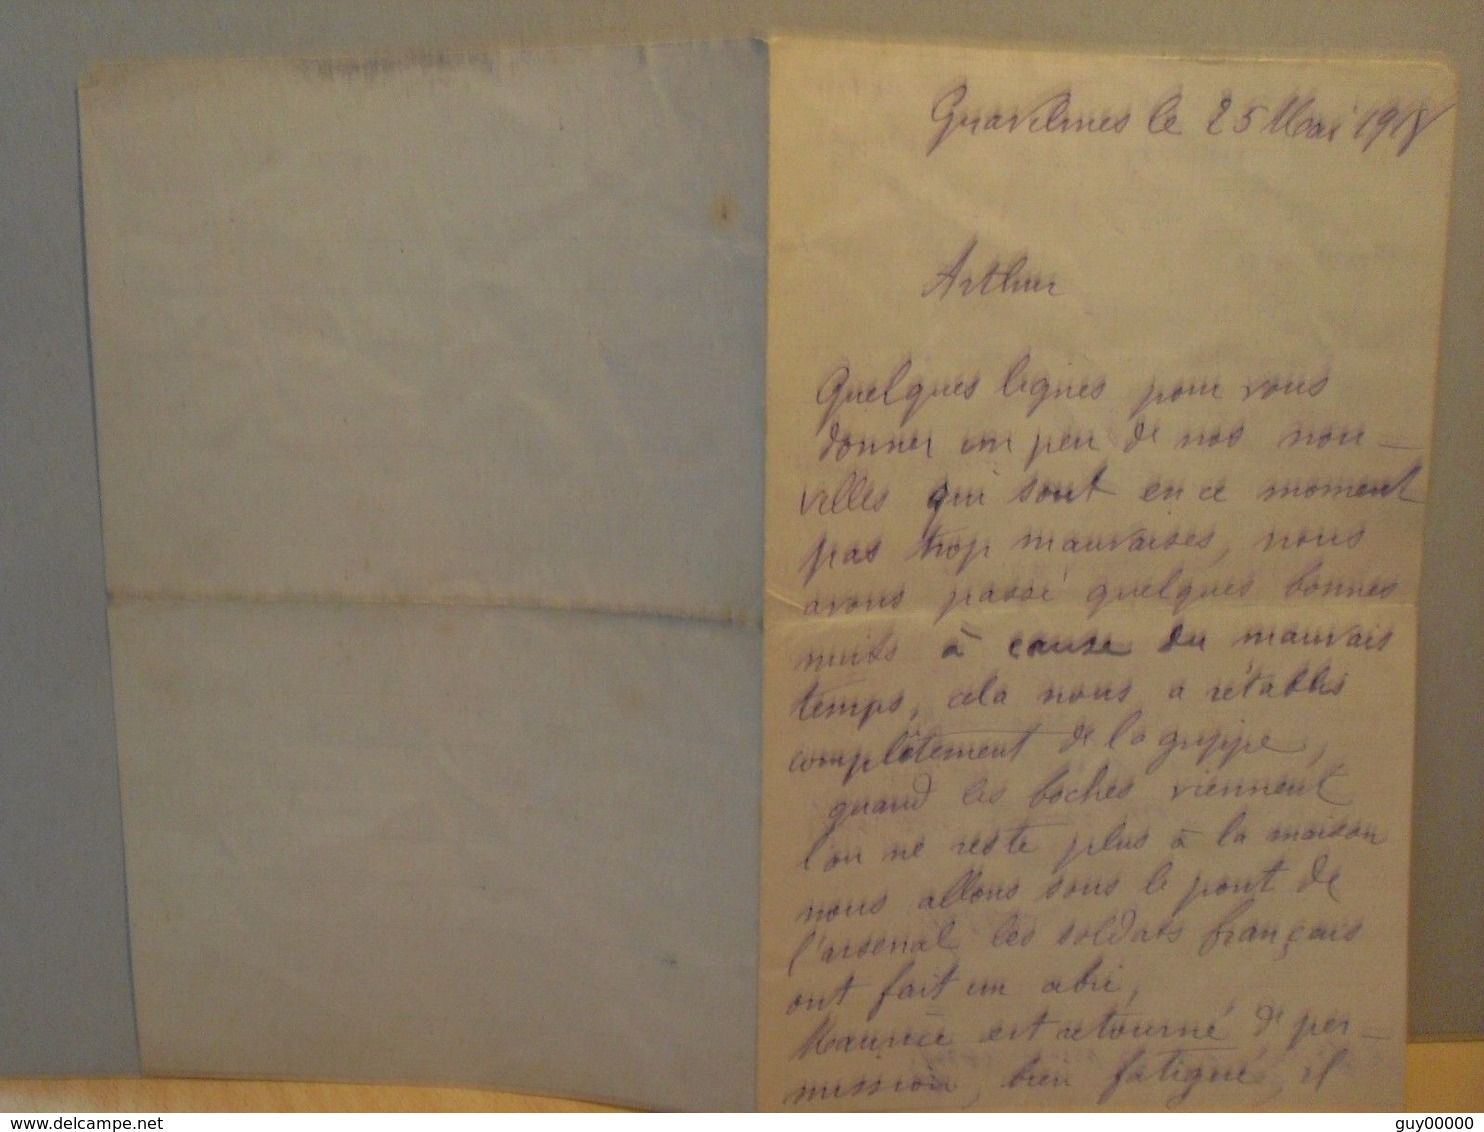 Gravelines le 25 Mai 1918
Arthur
Quelques lignes pour vous
donner un peu de nos nou-
velles qui sont en ce moment
pas trop mauvaises, nous
avons passé quelques bonnes
nuits à cause du mauvais
temps, cela nous a rétablis
complètement de la grippe,
quand les boches viennent
l'on ne reste plus à la maison
nous allons sous le pont de
l'arsenal les soldats français
ont fait un abri,
Maurice est retourné de per-
mission, bien fatigué, il
delcampe.net
guy00000